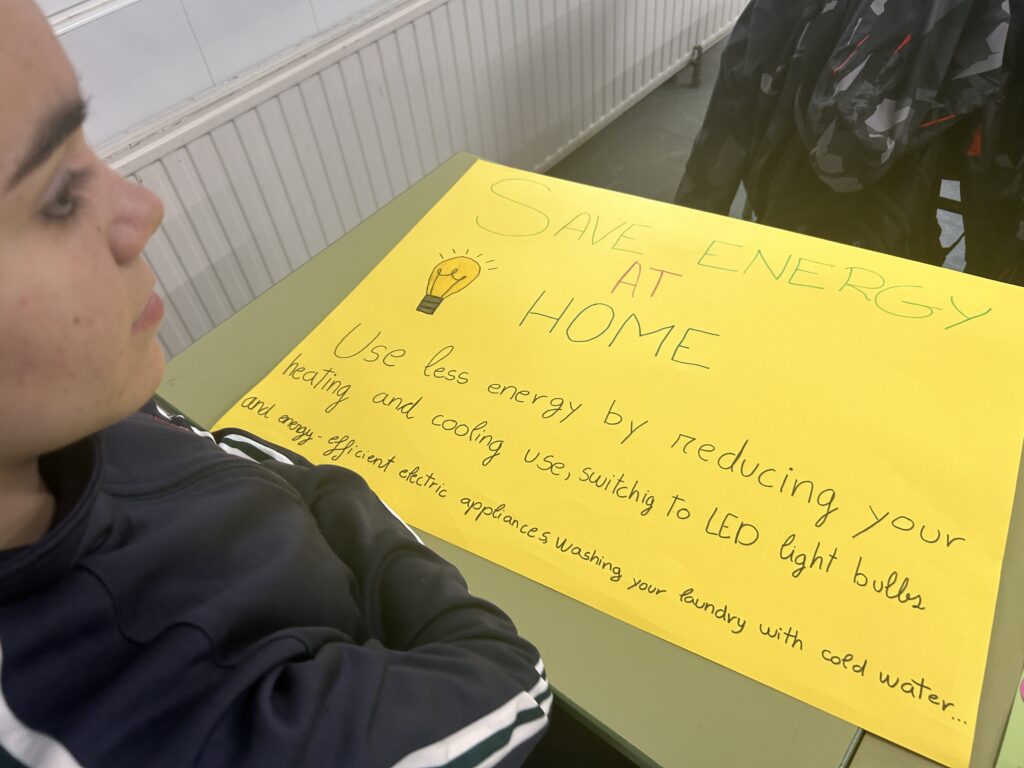 SAVE ENERGY
AT
HOME
Use less energy by reducing your
heating and cooling use, switchig to LED light bulbs
and energy-efficient electric appliances, washing your laundry with cold water...